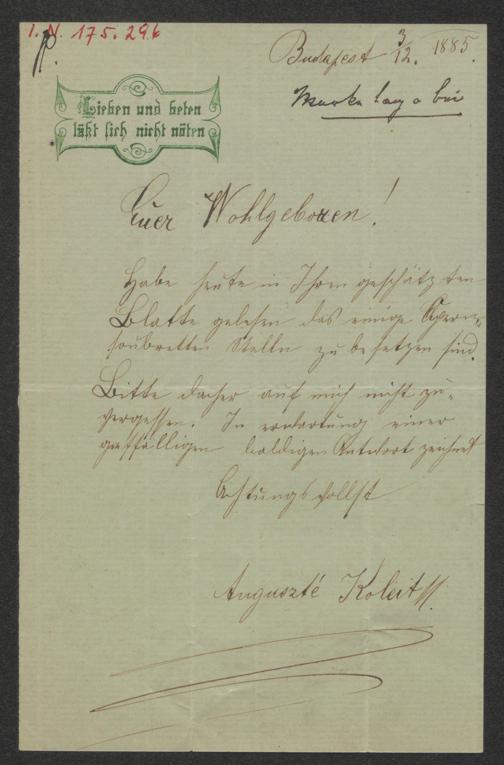 I. N. 175.296
Budapest 3/12. 1885.
Marke lag bei
Lieben und beten
läßt sich nicht nöten
Euer Wohlgeboren!
Habe heute in Ihren geschätzten
Blatte gelesen das einige Opern-
soubretten Stelln zu besetzen sind.
Bitte daher auf mich nicht zu-
vergessen. In erwartung einer
gefälligen baldigen Antwort zeichnet
Achtungsvollst
Auguszté Koleit